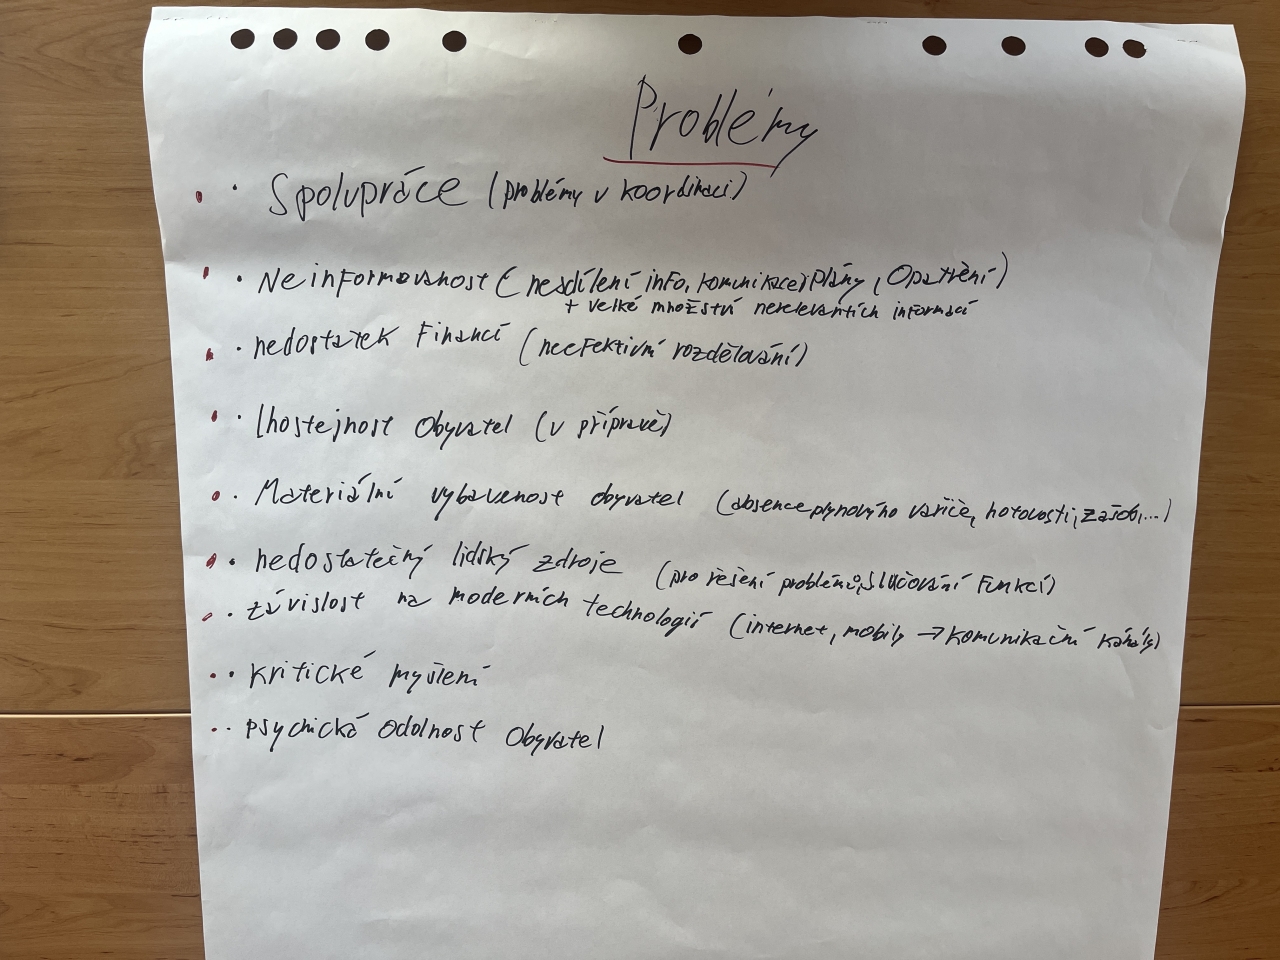 Problémy
• Spolupráce (problémy v koordinaci)
• Neinformovanost (nesdílení info, komunikace, plány, Opatření)
+ velké množství nerelevantích informací
• nedostatek Financí (neefektivní rozdělování)
• lhostejnost Obyvatel (v přípravě)
• Materiální vybavenost obyvatel (absence plynového vařiče, hotovosti, zásob,...)
• nedostatečný lidský zdroje (pro řešení problémů, slučování Funkcí)
• závislost na moderních technologií (internet, mobily → komunikační kanály)
• kritické myšlení
• psychická odolnost Obyvatel